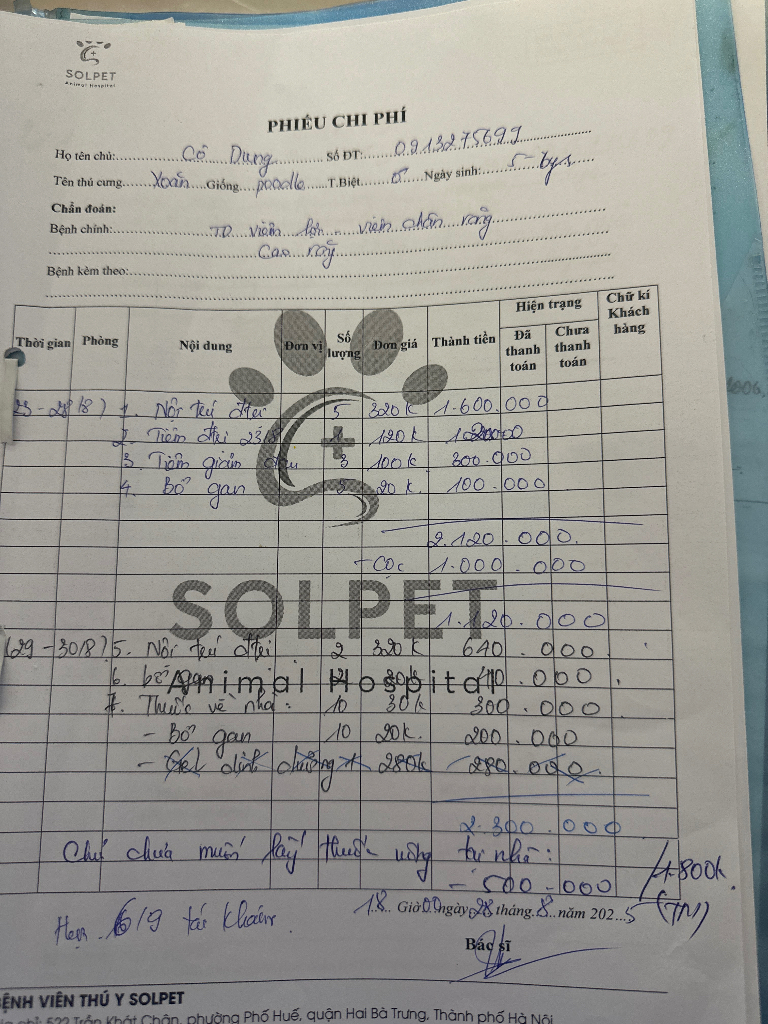 SOLPET
Animal Hospital
PHIẾU CHI PHÍ
Họ tên chủ: Cô Dung Số ĐT: 0913275699
Tên thú cưng Xoăn Giống poodle T.Biệt ♂ Ngày sinh: 5 tys
Chẩn đoán:
Bệnh chính: TD viêm lợi - viêm chân răng
Cao răng
Bệnh kèm theo:
Thời gian Phòng Nội dung Đơn vị Số lượng Đơn giá Thành tiền Hiện trạng Đã thanh toán Chưa thanh toán Chữ kí Khách hàng
23-28/8) 1. Nội trú đtri 5 320k 1.600.000
2. Tiêm đtri 23/8 120k
3. Tiêm giảm đau 3 100k 300.000
4. Bổ gan 20k. 100.000
2.120.000.
- Cọc 1.000.000
1.120.000
SOLPET
(29-30/8) 5. Nội trú đtri 2 320k 640.000
Animal Hospital
6. bổ gan 2 20k 40.000
7. Thuốc về nhà: 10 30k 300.000
- Bổ gan 10 20k. 200.000
- Gel dinh dưỡng 1 280k 280.000.
2.300.000
Chú chưa muốn lấy thuốc uống tại nhà:
- 500.000
1.800k.
(TN)
18 Giờ 00 ngày 28 tháng 8 năm 2025
Hẹn 6/9 tái khám.
Bác sĩ
BỆNH VIỆN THÚ Y SOLPET
chỉ: 522 Trần Khát Chân, phường Phố Huế, quận Hai Bà Trưng, Thành phố Hà Nội